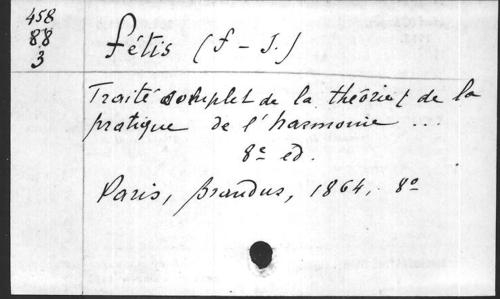 458
88
3
Fétis (F-J.)
Traité complet de la théorie et de la
pratique de l'harmonie ...
8e ed.
Paris, Brandus, 1864, 8º